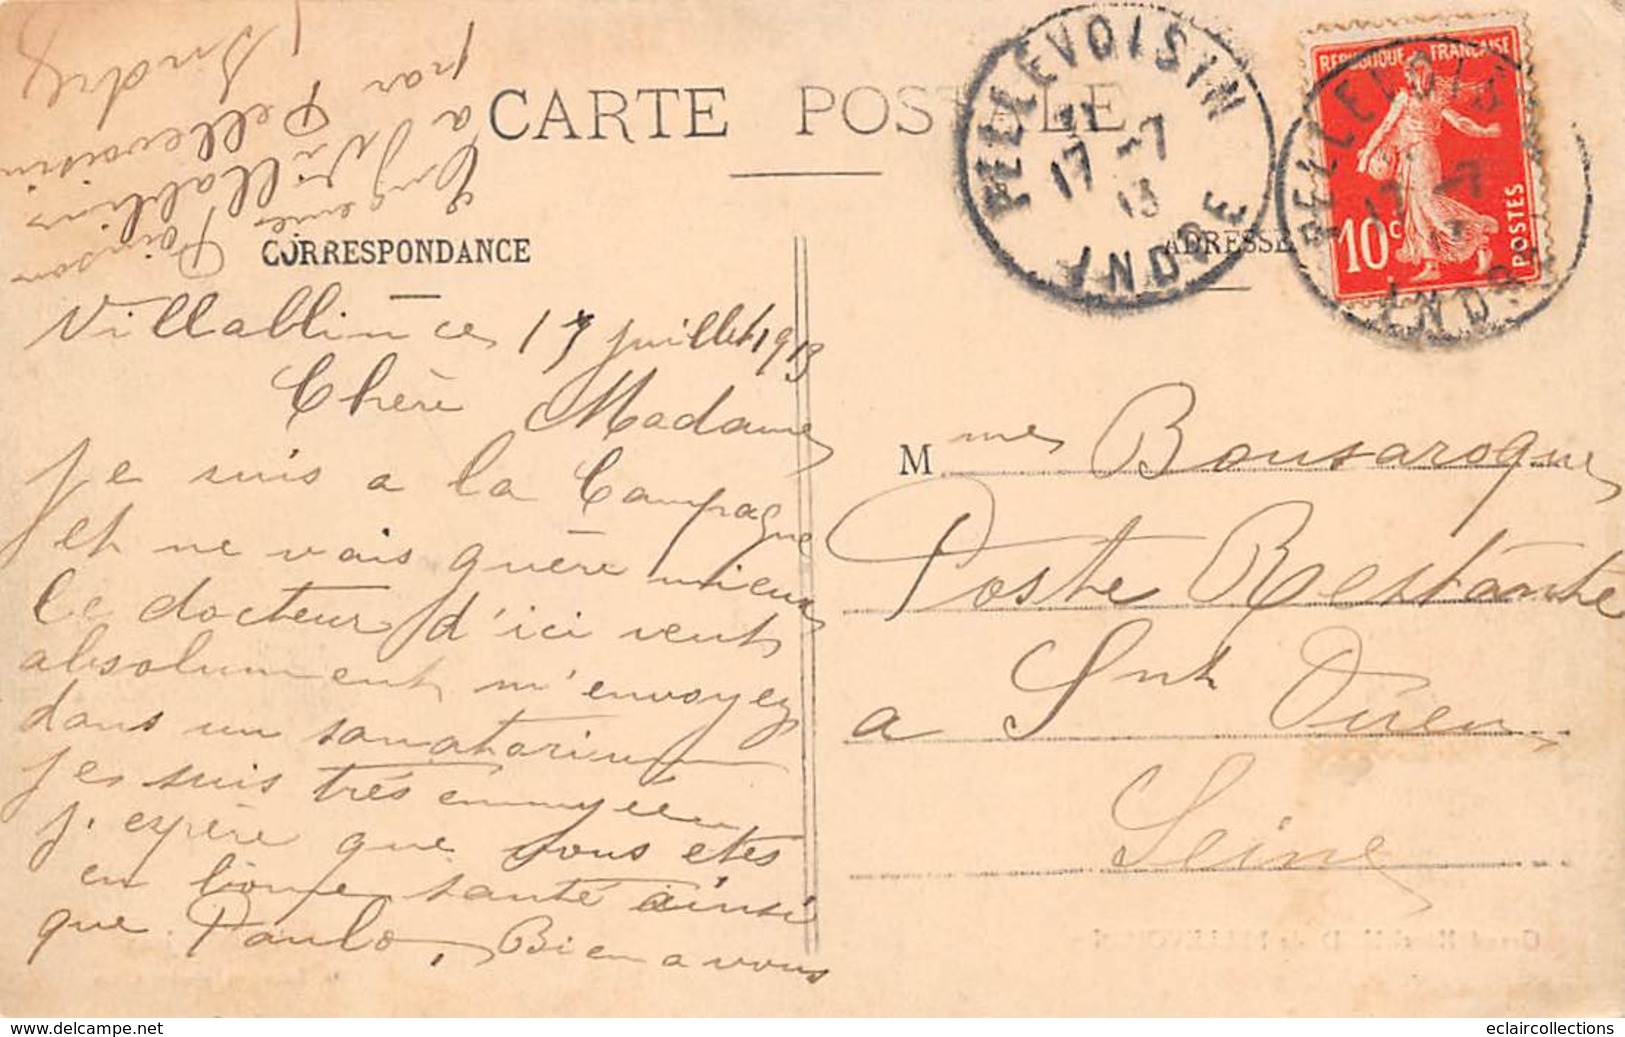 CARTE POSTALE
CORRESPONDANCE
ADRESSE
PELLEVOISIN
17 -7
13
INDRE
REPUBLIQUE FRANÇAISE
10c
POSTES
PELLEVOISIN
17 -7
INDRE
Eugenie Poinson
a Villablin
par Pellevoisin
Indre
Villablin ce 17 juillet 1913
Chère Madame
Je suis a la Campagne
et ne vais guère mieux
le docteur d'ici veut
absolument m'envoyez
dans un sanatorium
Je suis très ennuyée
J'espère que vous etes
en bonne santé ainsi
que Paulo, Bien a vous
Mme Bousaroque
Poste Restante
a Snt Ouen
Seine
www.delcampe.net
eclaircollections